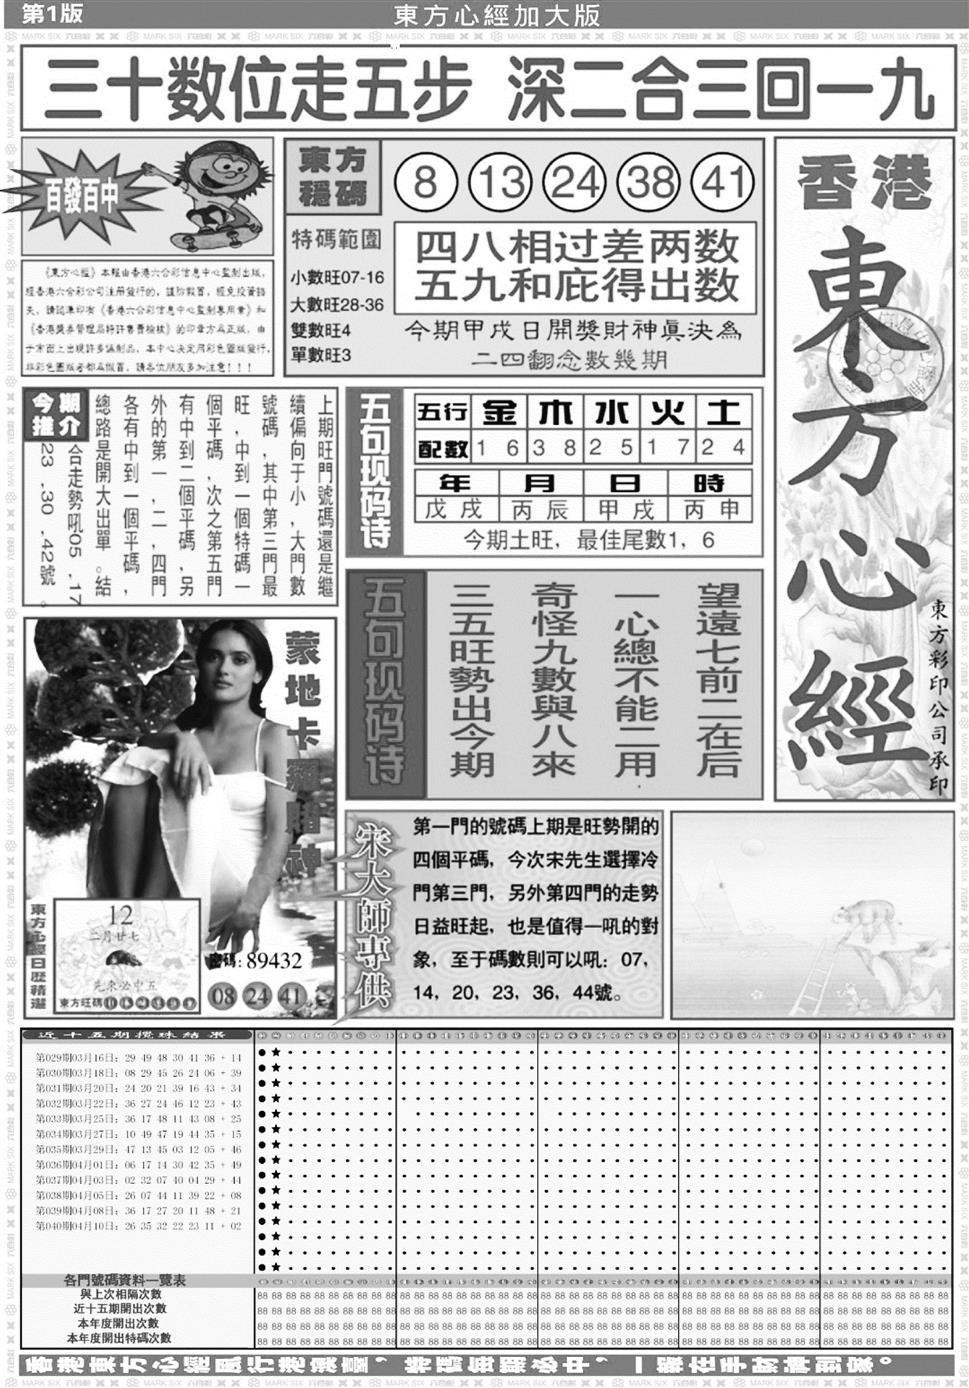 第1版
東方心經加大版
三十数位走五步 深二合三回一九
百發百中
東方穩碼
8 13 24 38 41
特碼範圍
小數旺07-16
大數旺28-36
雙數旺4
單數旺3
四八相过差两数
五九和庇得出数
今期甲戌日開獎財神真決為
二四翻念數幾期
香港
東方心經
東方彩印公司承印
《東方心經》本報由香港六合彩信息中心監制出版，
經香港六合彩公司注册發行的，謹防假冒，經免投資錯
失，請認準印有《香港六合彩信息中心監制專用章》和
《香港獎券管理局特許售賣檢核》的印章方爲正版，由
于市面上出現許多僞制品，本中心決定用彩色圖版發行，
非彩色圖版者都爲假冒，請各位朋友多加注意！！！
今期推介
上期旺門號碼還是繼
續偏向于小，大門數
號碼，其中第三門最
旺，中到一個特碼一
個平碼，次之第五門
有中到二個平碼，另
外的第一，二，四門
各有中到一個平碼，
總路是開大出單。結
合走勢吼05，17
23，30，42號。
五句现码诗
五行 金 木 水 火 土
配數 1 6 3 8 2 5 1 7 2 4
年 月 日 時
戊戌 丙辰 甲戌 丙申
今期土旺，最佳尾數1，6
五句现码诗
望遠七前二在后
一心總不能二用
奇怪九數與八來
三五旺勢出今期
蒙地卡羅賭神
東方心經日歷精選
12
二月廿七
先來必中五
東方旺碼
密碼:89432
08 24 41
宋大師專供
第一門的號碼上期是旺勢開的
四個平碼，今次宋先生選擇冷
門第三門，另外第四門的走勢
日益旺起，也是值得一吼的對
象，至于碼數則可以吼：07，
14，20，23，36，44號。
近十五期攪珠結果
第029期03月16日：29 49 48 30 41 36 + 14
第030期03月18日：08 29 45 26 24 06 + 39
第031期03月20日：24 20 21 39 16 43 + 34
第032期03月22日：36 27 24 46 12 23 + 43
第033期03月25日：36 17 48 11 43 08 + 25
第034期03月27日：10 49 47 19 44 35 + 15
第035期03月29日：47 13 45 03 12 05 + 46
第036期04月01日：06 17 14 30 42 35 + 49
第037期04月03日：02 32 07 40 04 29 + 44
第038期04月05日：26 07 44 11 39 22 + 08
第039期04月08日：36 17 27 20 11 48 + 21
第040期04月10日：26 35 32 22 23 11 + 02
各門號碼資料一覽表
與上次相隔次數
近十五期開出次數
本年度開出次數
本年度開出特碼次數
香港東方心經風行港澳臺，特碼每期必中，一報在手財神到家。